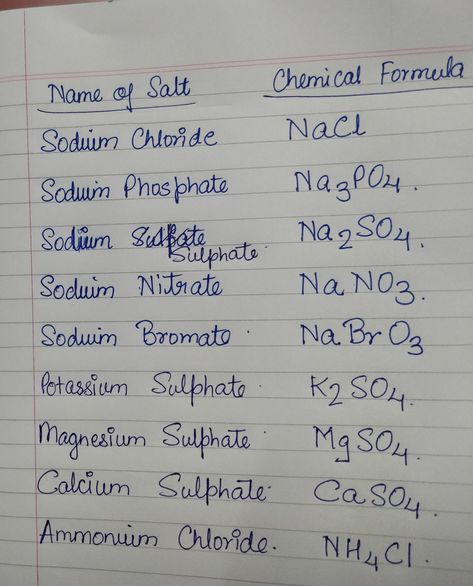 Name of Salt Chemical Formula
Sodium Chloride NaCl
Sodium Phosphate Na3PO4.
Sodium Sulphate. Na2SO4.
Sodium Nitrate NaNO3.
Sodium Bromate. NaBrO3
Potassium Sulphate. K2SO4.
Magnesium Sulphate. MgSO4.
Calcium Sulphate. CaSO4.
Ammonium Chloride. NH4Cl.